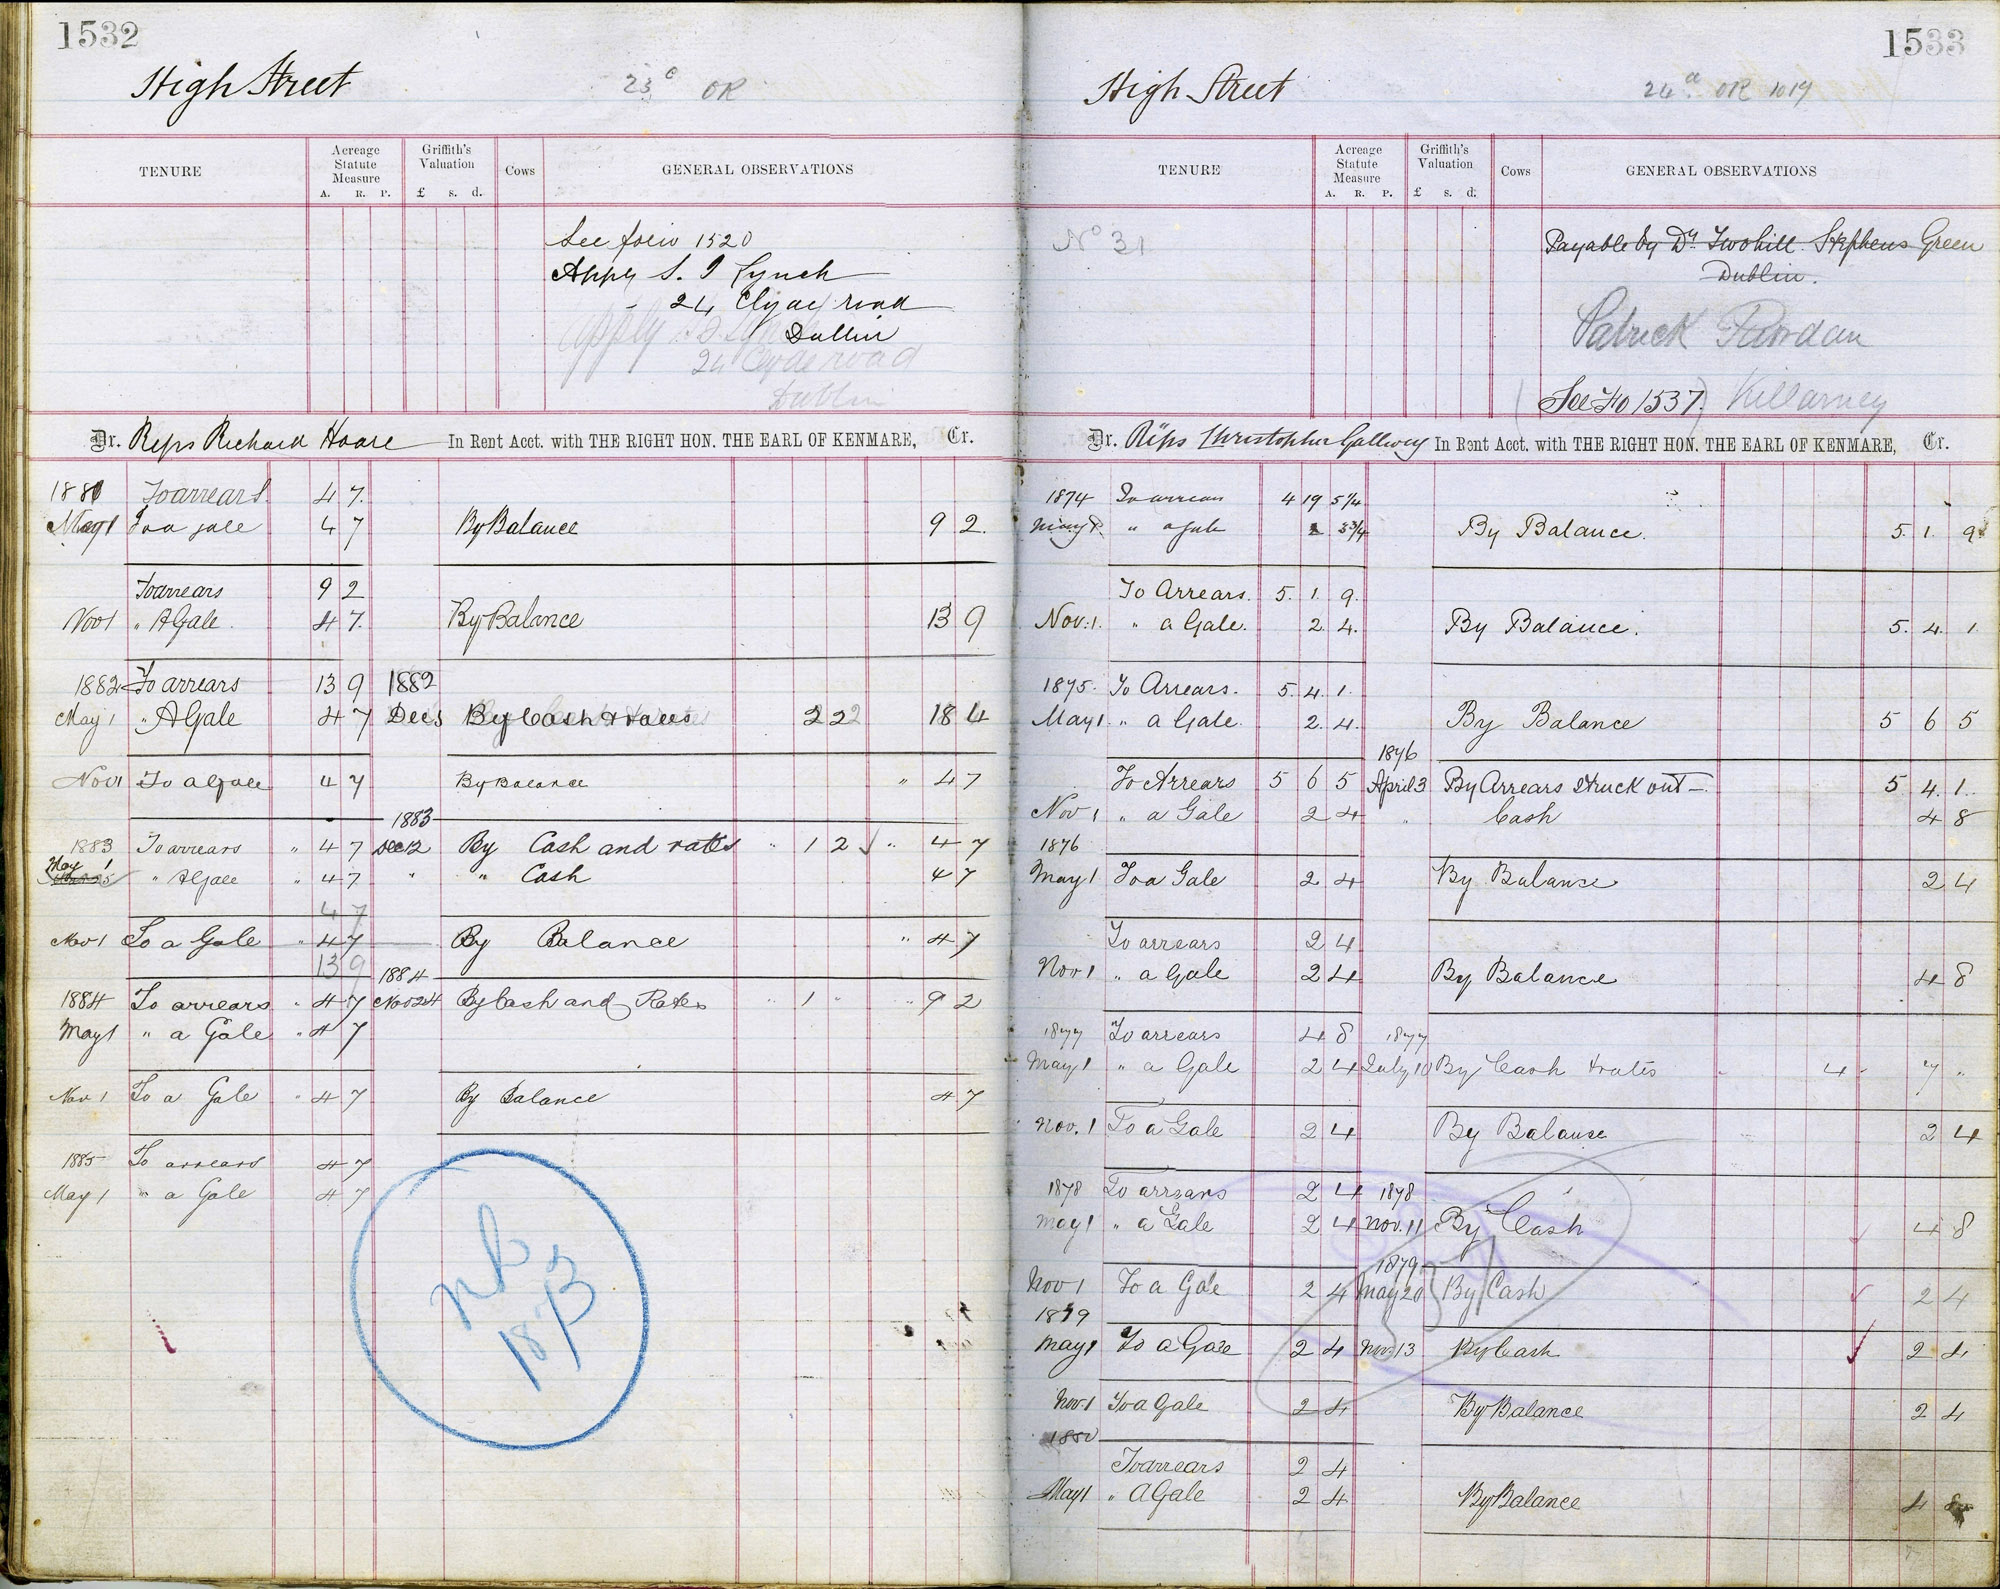 1532
High Street
23c OR
TENURE
Acreage Statute Measure
A. R. P.
Griffith's Valuation
£ s. d.
Cows
GENERAL OBSERVATIONS
See folio 1520
Apply S. J Lynch
24 Clyde road
Dublin
Apply S. J Lynch
24 Clyde road
Dublin
Dr. Reps Richard Hoare In Rent Acct. with THE RIGHT HON. THE EARL OF KENMARE, Cr.
1881 To arrears 4 7
May 1 To a gale 4 7 By Balance 9 2
To arrears 9 2
Nov 1 " A Gale 4 7 By Balance 13 9
1882 To arrears 13 9 1882
May 1 " A Gale 4 7 Dec 5 By Cash & rates 2 2 18 4
Nov 1 To a Gale 4 7 By Balance " 4 7
1883
1883 To arrears " 4 7 Dec 12 By Cash and rates " 1 2 " 4 7
May 1 " A Gale " 4 7 " " Cash 4 7
4 7
Nov 1 To a Gale " 4 7 By Balance " 4 7
13 9 1884
1884 To arrears " 4 7 Nov 24 By Cash and Rates " 1 " " 9 2
May 1 " a Gale " 4 7
Nov 1 To a Gale " 4 7 By Balance 4 7
1885 To arrears 4 7
May 1 " a Gale 4 7
1533
High Street
24a OR 1019
TENURE
Acreage Statute Measure
A. R. P.
Griffith's Valuation
£ s. d.
Cows
GENERAL OBSERVATIONS
No 31
Payable by Dr. Twohill Stephens Green
Dublin.
Patrick Riordan
See Fo 1537 Killarney
Dr. Reps Christopher Gallwey In Rent Acct. with THE RIGHT HON. THE EARL OF KENMARE, Cr.
1874 To arrears 4 19 5 1/4
May 1 " a gale 3 3/4 By Balance. 5. 1. 9
To Arrears. 5. 1. 9.
Nov. 1. " a Gale. 2. 4. By Balance. 5. 4. 1.
1875. To Arrears. 5. 4. 1.
May 1. " a Gale. 2. 4. By Balance 5 6 5
1876
To Arrears 5 6 5 April 3 By Arrears Struck out 5 4. 1.
Nov 1 " a Gale 2 4 " Cash 4 8
1876
May 1 To a Gale 2 4 By Balance 2 4
To arrears 2 4
Nov 1 " a Gale 2 4 By Balance 4 8
1877 To arrears 4 8 1877
May 1 " a Gale 2 4 July 10 By Cash & rates 4 7 "
Nov. 1 To a Gale 2 4 By Balance 2 4
1878 To arrears 2 4 1878
May 1 " a Gale 2 4 Nov. 11 By Cash 4 8
1879
Nov 1 To a Gale 2 4 May 20 By Cash 2 4
1879
May 1 To a Gale 2 4 Nov 13 By Cash 2 4
Nov. 1 To a Gale 2 4 By Balance 2 4
1880
To arrears 2 4
May 1 " A Gale 2 4 By Balance 4 8